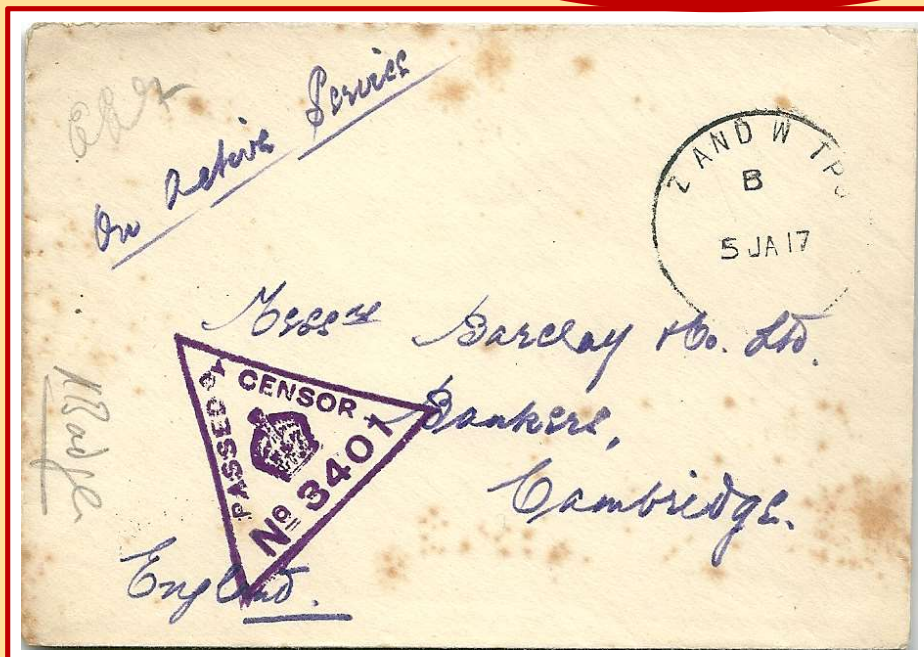 On Active Service
Z AND W TPO
B
5 JA 17
Messrs Barclay & Co. Ltd.
Bankers,
Cambridge.
England.
PASSED BY CENSOR
No 3401